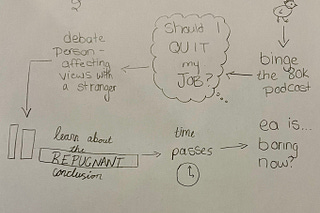 debate
person-
affecting
views with
a stranger
Should I
QUIT
my
JOB?
binge
the 80k
podcast
learn about
the
REPUGNANT
conclusion
time
passes
ea is...
boring
now?